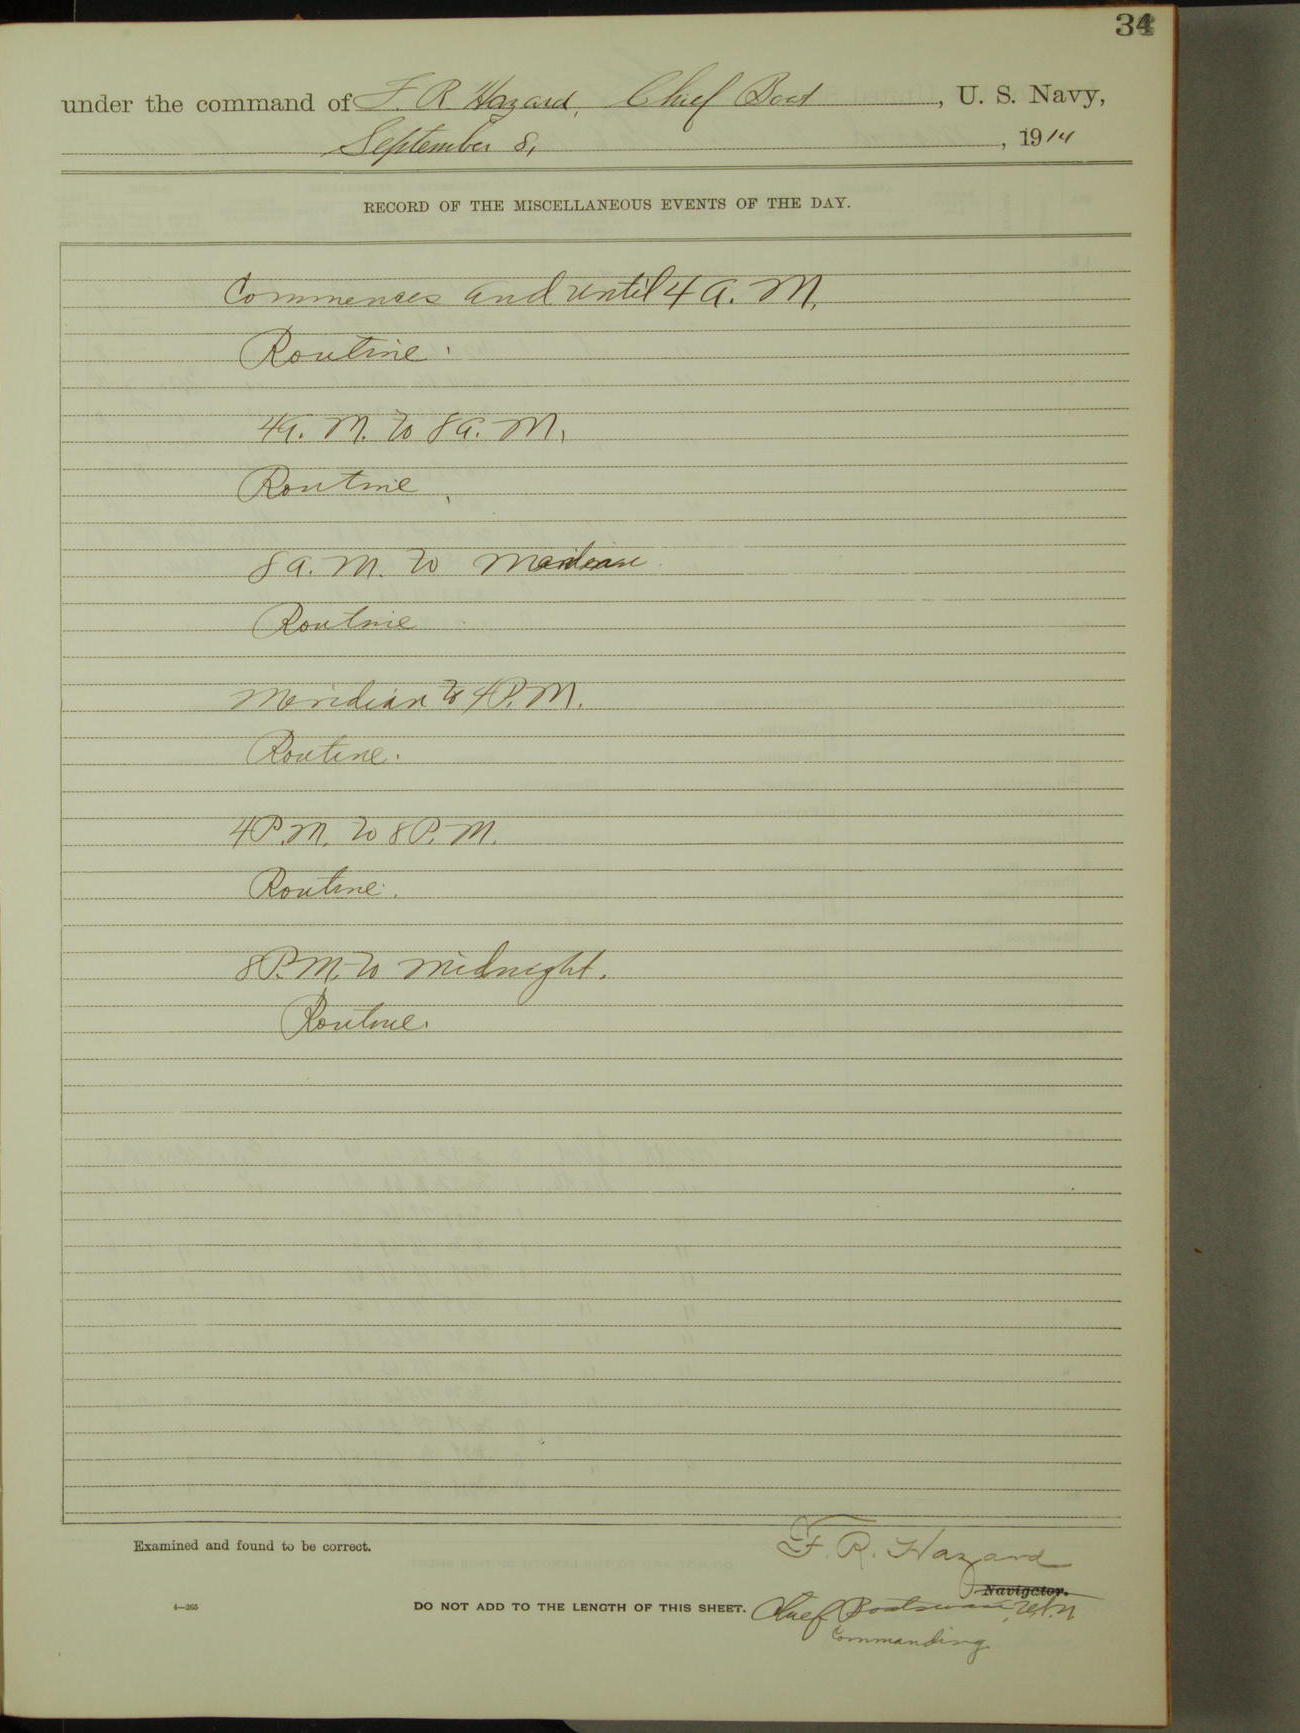 34
under the command of F. R. Hazard, Chief Boat , U. S. Navy,
September 8, , 1914
RECORD OF THE MISCELLANEOUS EVENTS OF THE DAY.
Commences and until 4 A. M.
Routine.
4 A. M. to 8 A. M.
Routine.
8 A. M. to Meridian
Routine
Meridian to 4 P. M.
Routine.
4 P. M. to 8 P. M.
Routine.
8 P. M. to Midnight.
Routine.
Examined and found to be correct.
F. R. Hazard
Navigator.
4—265
DO NOT ADD TO THE LENGTH OF THIS SHEET.
Chief Boatswain, U.S.N
Commanding